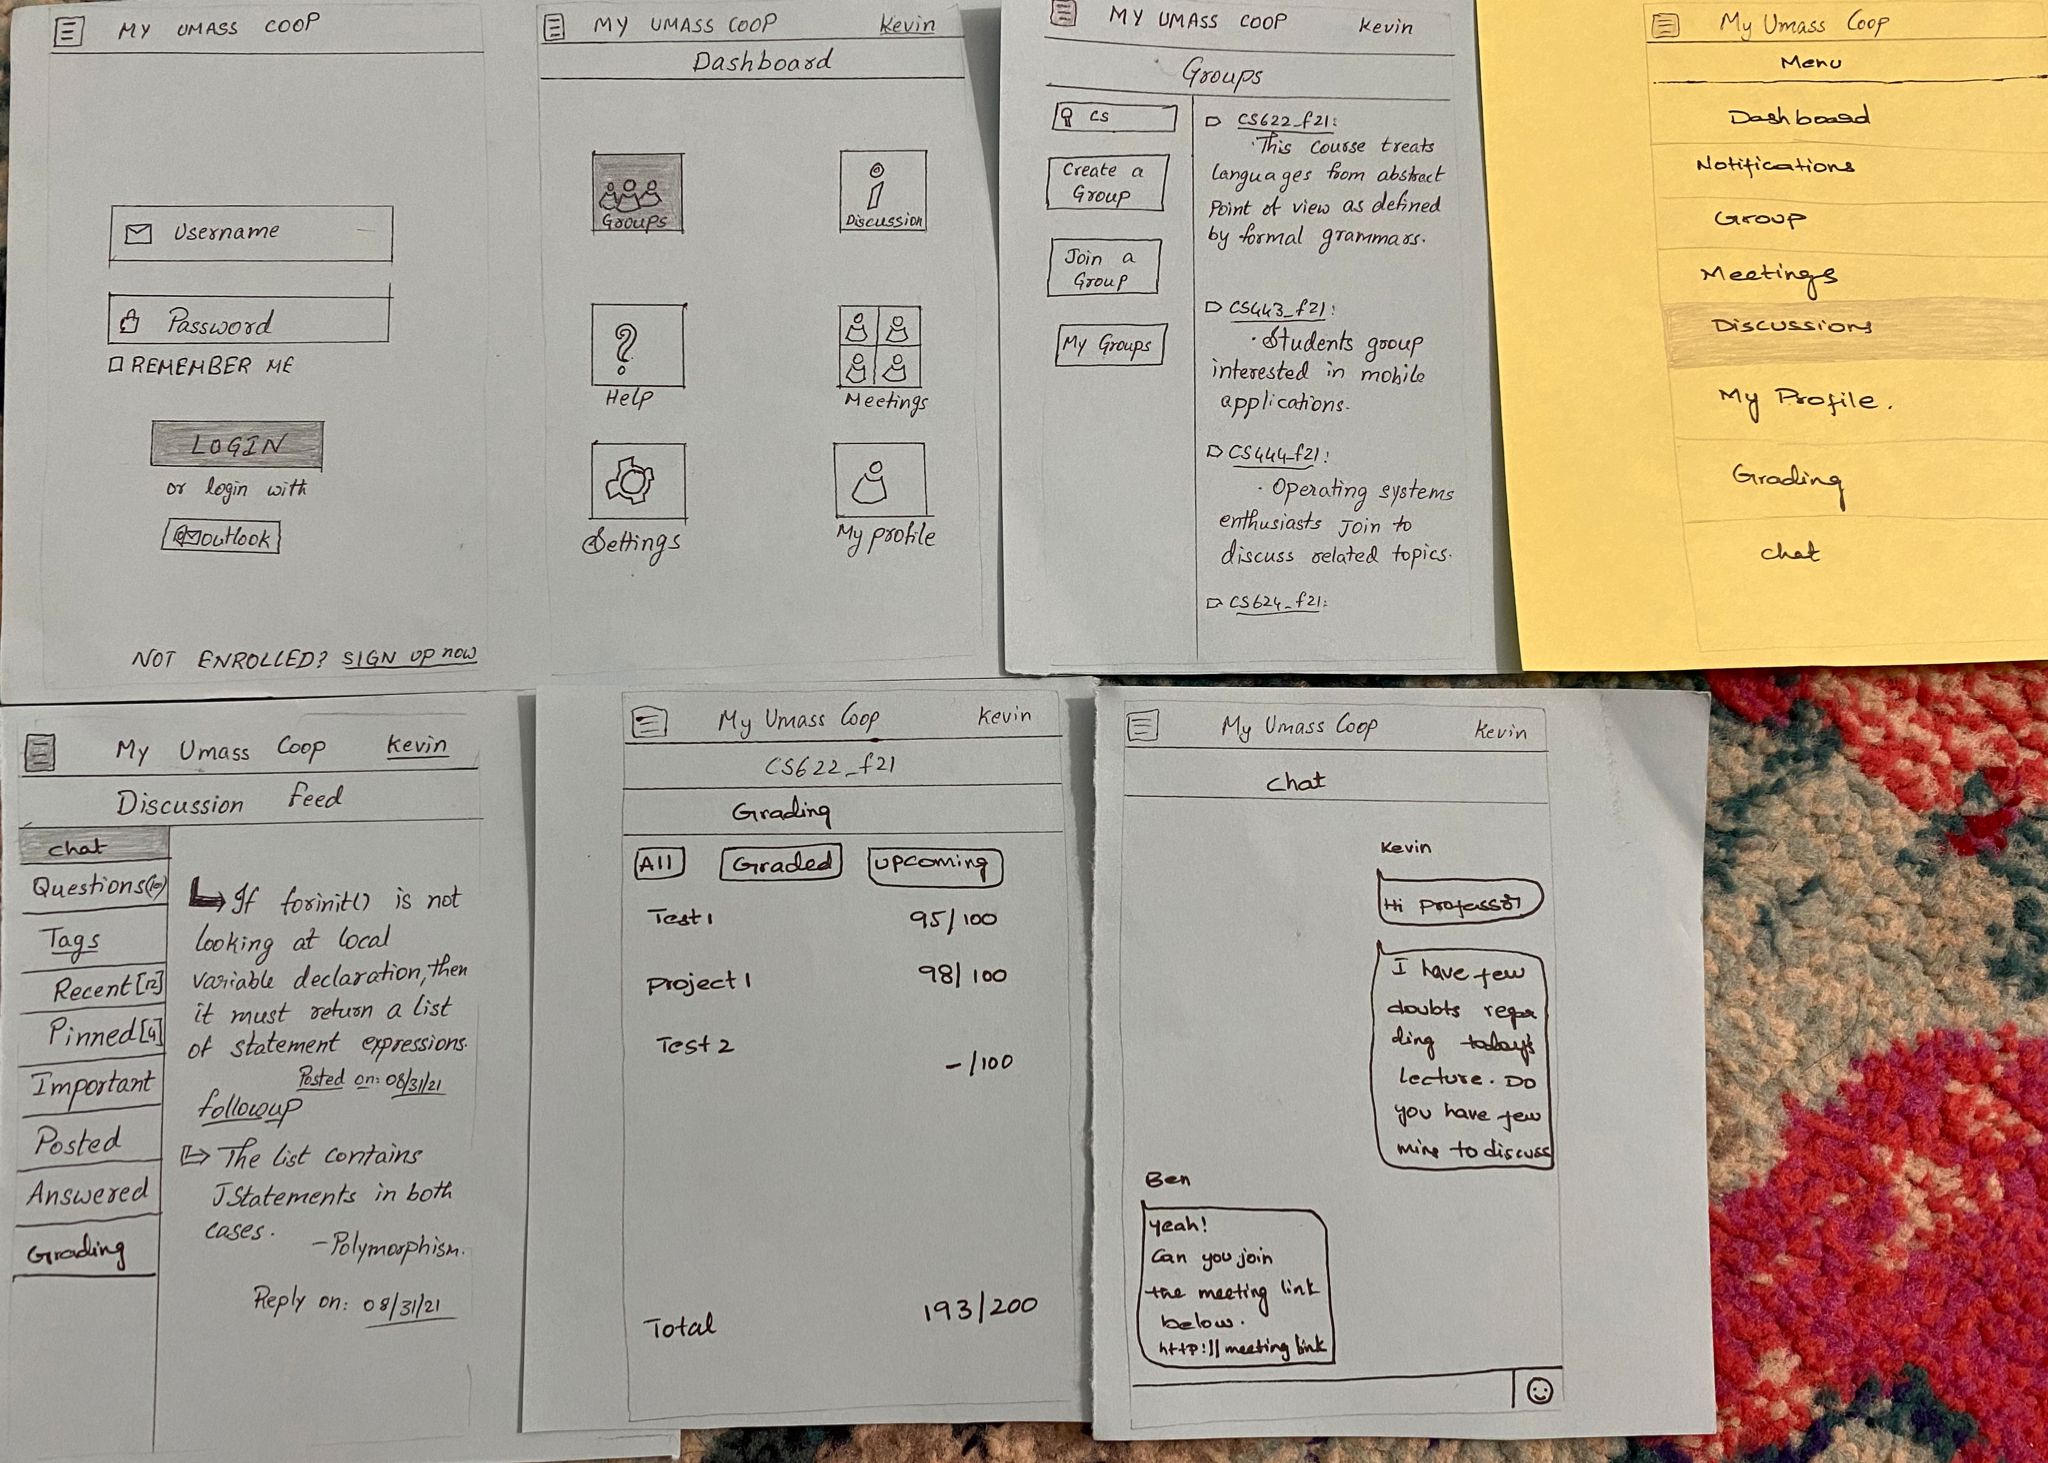 MY UMASS COOP
Username
Password
REMEMBER ME
LOGIN
or login with
outlook
NOT ENROLLED? SIGN UP now
MY UMASS COOP Kevin
Dashboard
Groups
Discussion
Help
Meetings
Settings
My profile
MY UMASS COOP Kevin
Groups
CS
Create a
Group
Join a
Group
My Groups
CS622_f21:
This course treats
languages from abstract
Point of view as defined
by formal grammars.
CS443_f21:
Students group
interested in mobile
applications.
CS444_f21:
Operating systems
enthusiasts Join to
discuss related topics.
CS624_f21:
My Umass Coop
Menu
Dashboard
Notifications
Group
Meetings
Discussions
My Profile.
Grading
chat
My Umass Coop Kevin
Discussion Feed
chat
Questions(10)
Tags
Recent[12]
Pinned[4]
Important
Posted
Answered
Grading
If forinit() is not
looking at local
variable declaration, then
it must return a list
of statement expressions.
Posted on: 08/31/21
followup
The list contains
JStatements in both
cases.
-Polymorphism.
Reply on: 08/31/21
My Umass Coop Kevin
CS622_f21
Grading
All Graded upcoming
Test1 95/100
project1 98/100
Test 2 -/100
Total 193/200
My Umass Coop Kevin
chat
Kevin
Hi professor
I have few
doubts regar
ding today's
lecture. Do
you have few
mins to discuss
Ben
yeah!
Can you join
the meeting link
below.
http://meeting link